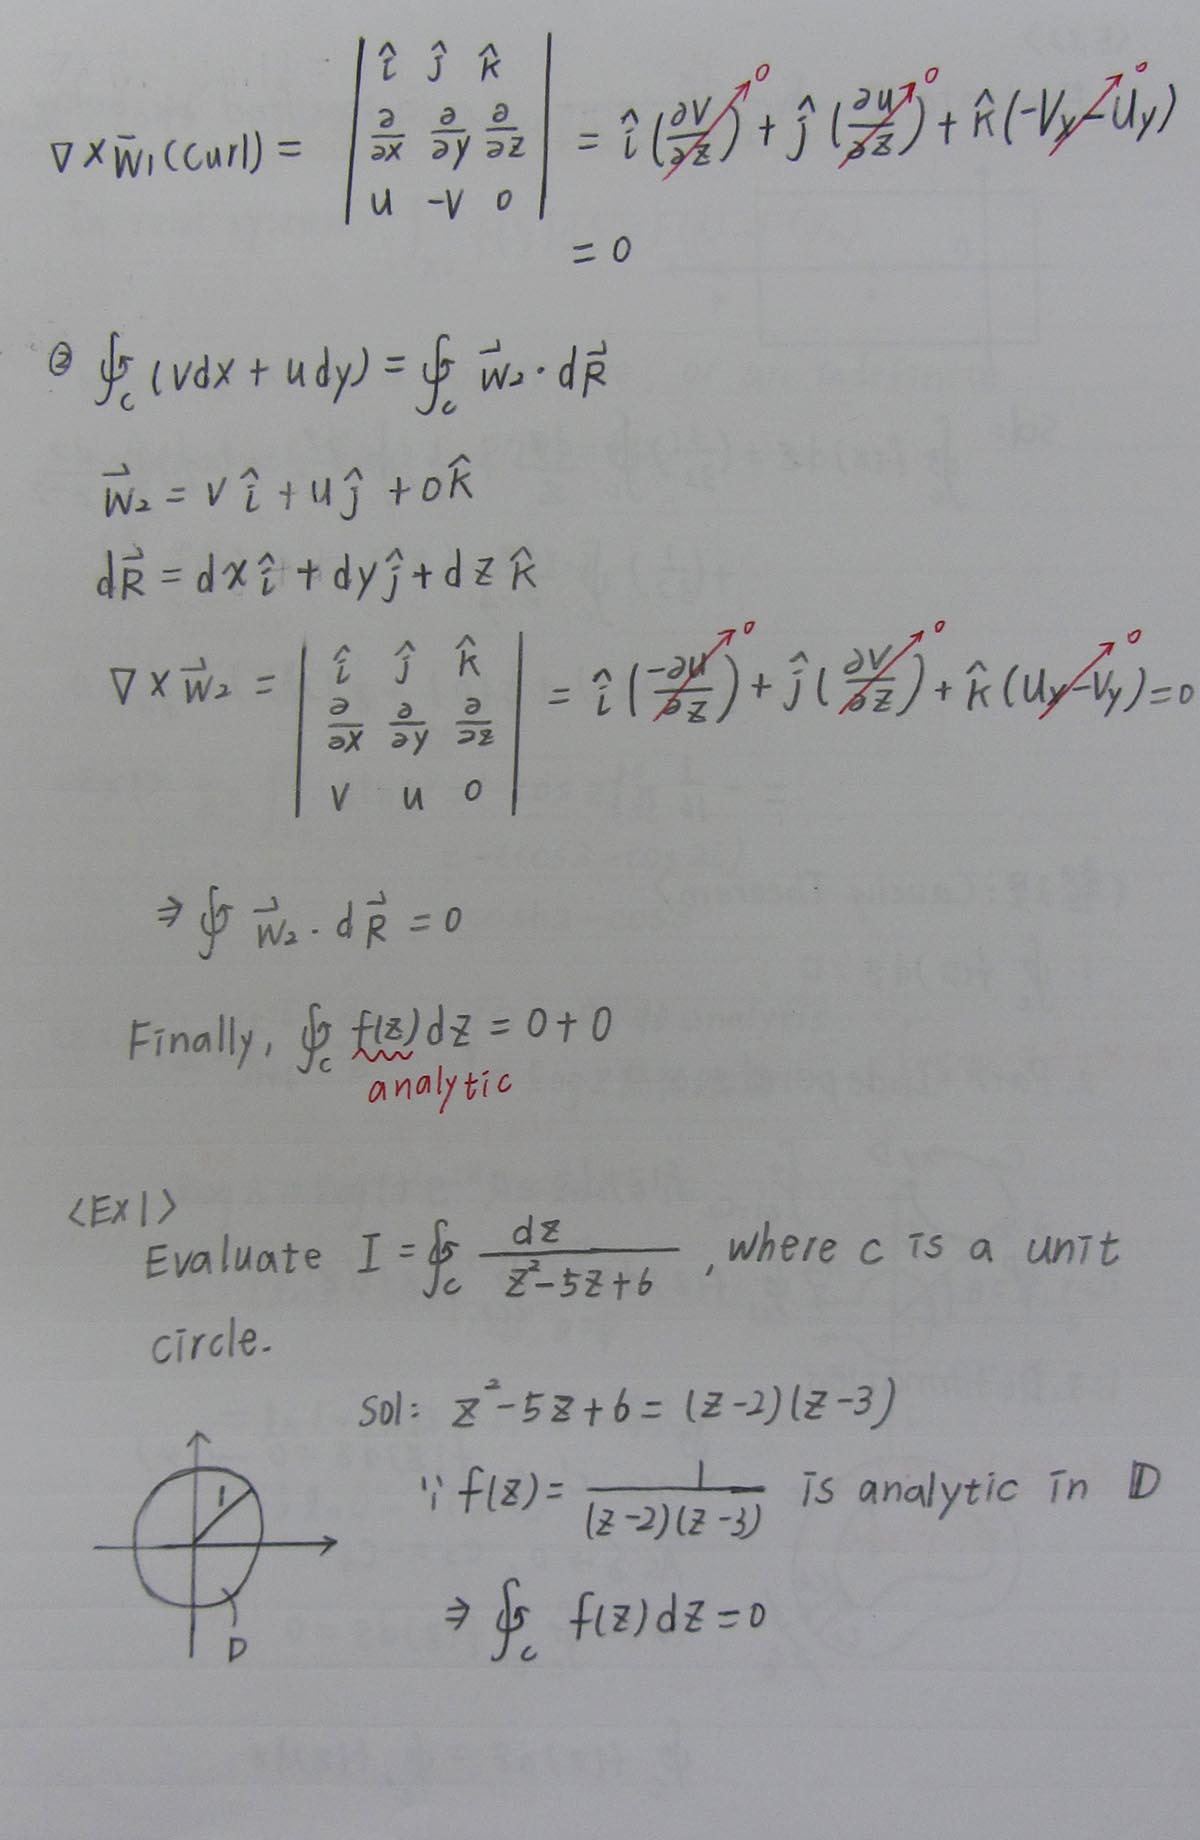 ∇ × W⃗₁ (Curl) = | î ĵ k̂ ; ∂/∂x ∂/∂y ∂/∂z ; u -v 0 | = î (∂v/∂z)→0 + ĵ (∂u/∂z)→0 + k̂ (-Vx - Uy)→0
= 0
② ∮c (vdx + udy) = ∮c W⃗₂ · dR⃗
W⃗₂ = v î + u ĵ + 0 k̂
dR⃗ = dx î + dy ĵ + dz k̂
∇ × W⃗₂ = | î ĵ k̂ ; ∂/∂x ∂/∂y ∂/∂z ; v u 0 | = î (-∂u/∂z)→0 + ĵ (∂v/∂z)→0 + k̂ (Ux - Vy)→0 = 0
⇒ ∮ W⃗₂ · dR⃗ = 0
Finally, ∮c f(z) dz = 0 + 0
analytic
<Ex 1>
Evaluate I = ∮c dz/(z² - 5z + 6) , where c is a unit
circle.
Sol: z² - 5z + 6 = (z-2)(z-3)
∵ f(z) = 1/((z-2)(z-3)) is analytic in D
⇒ ∮c f(z) dz = 0
1
D